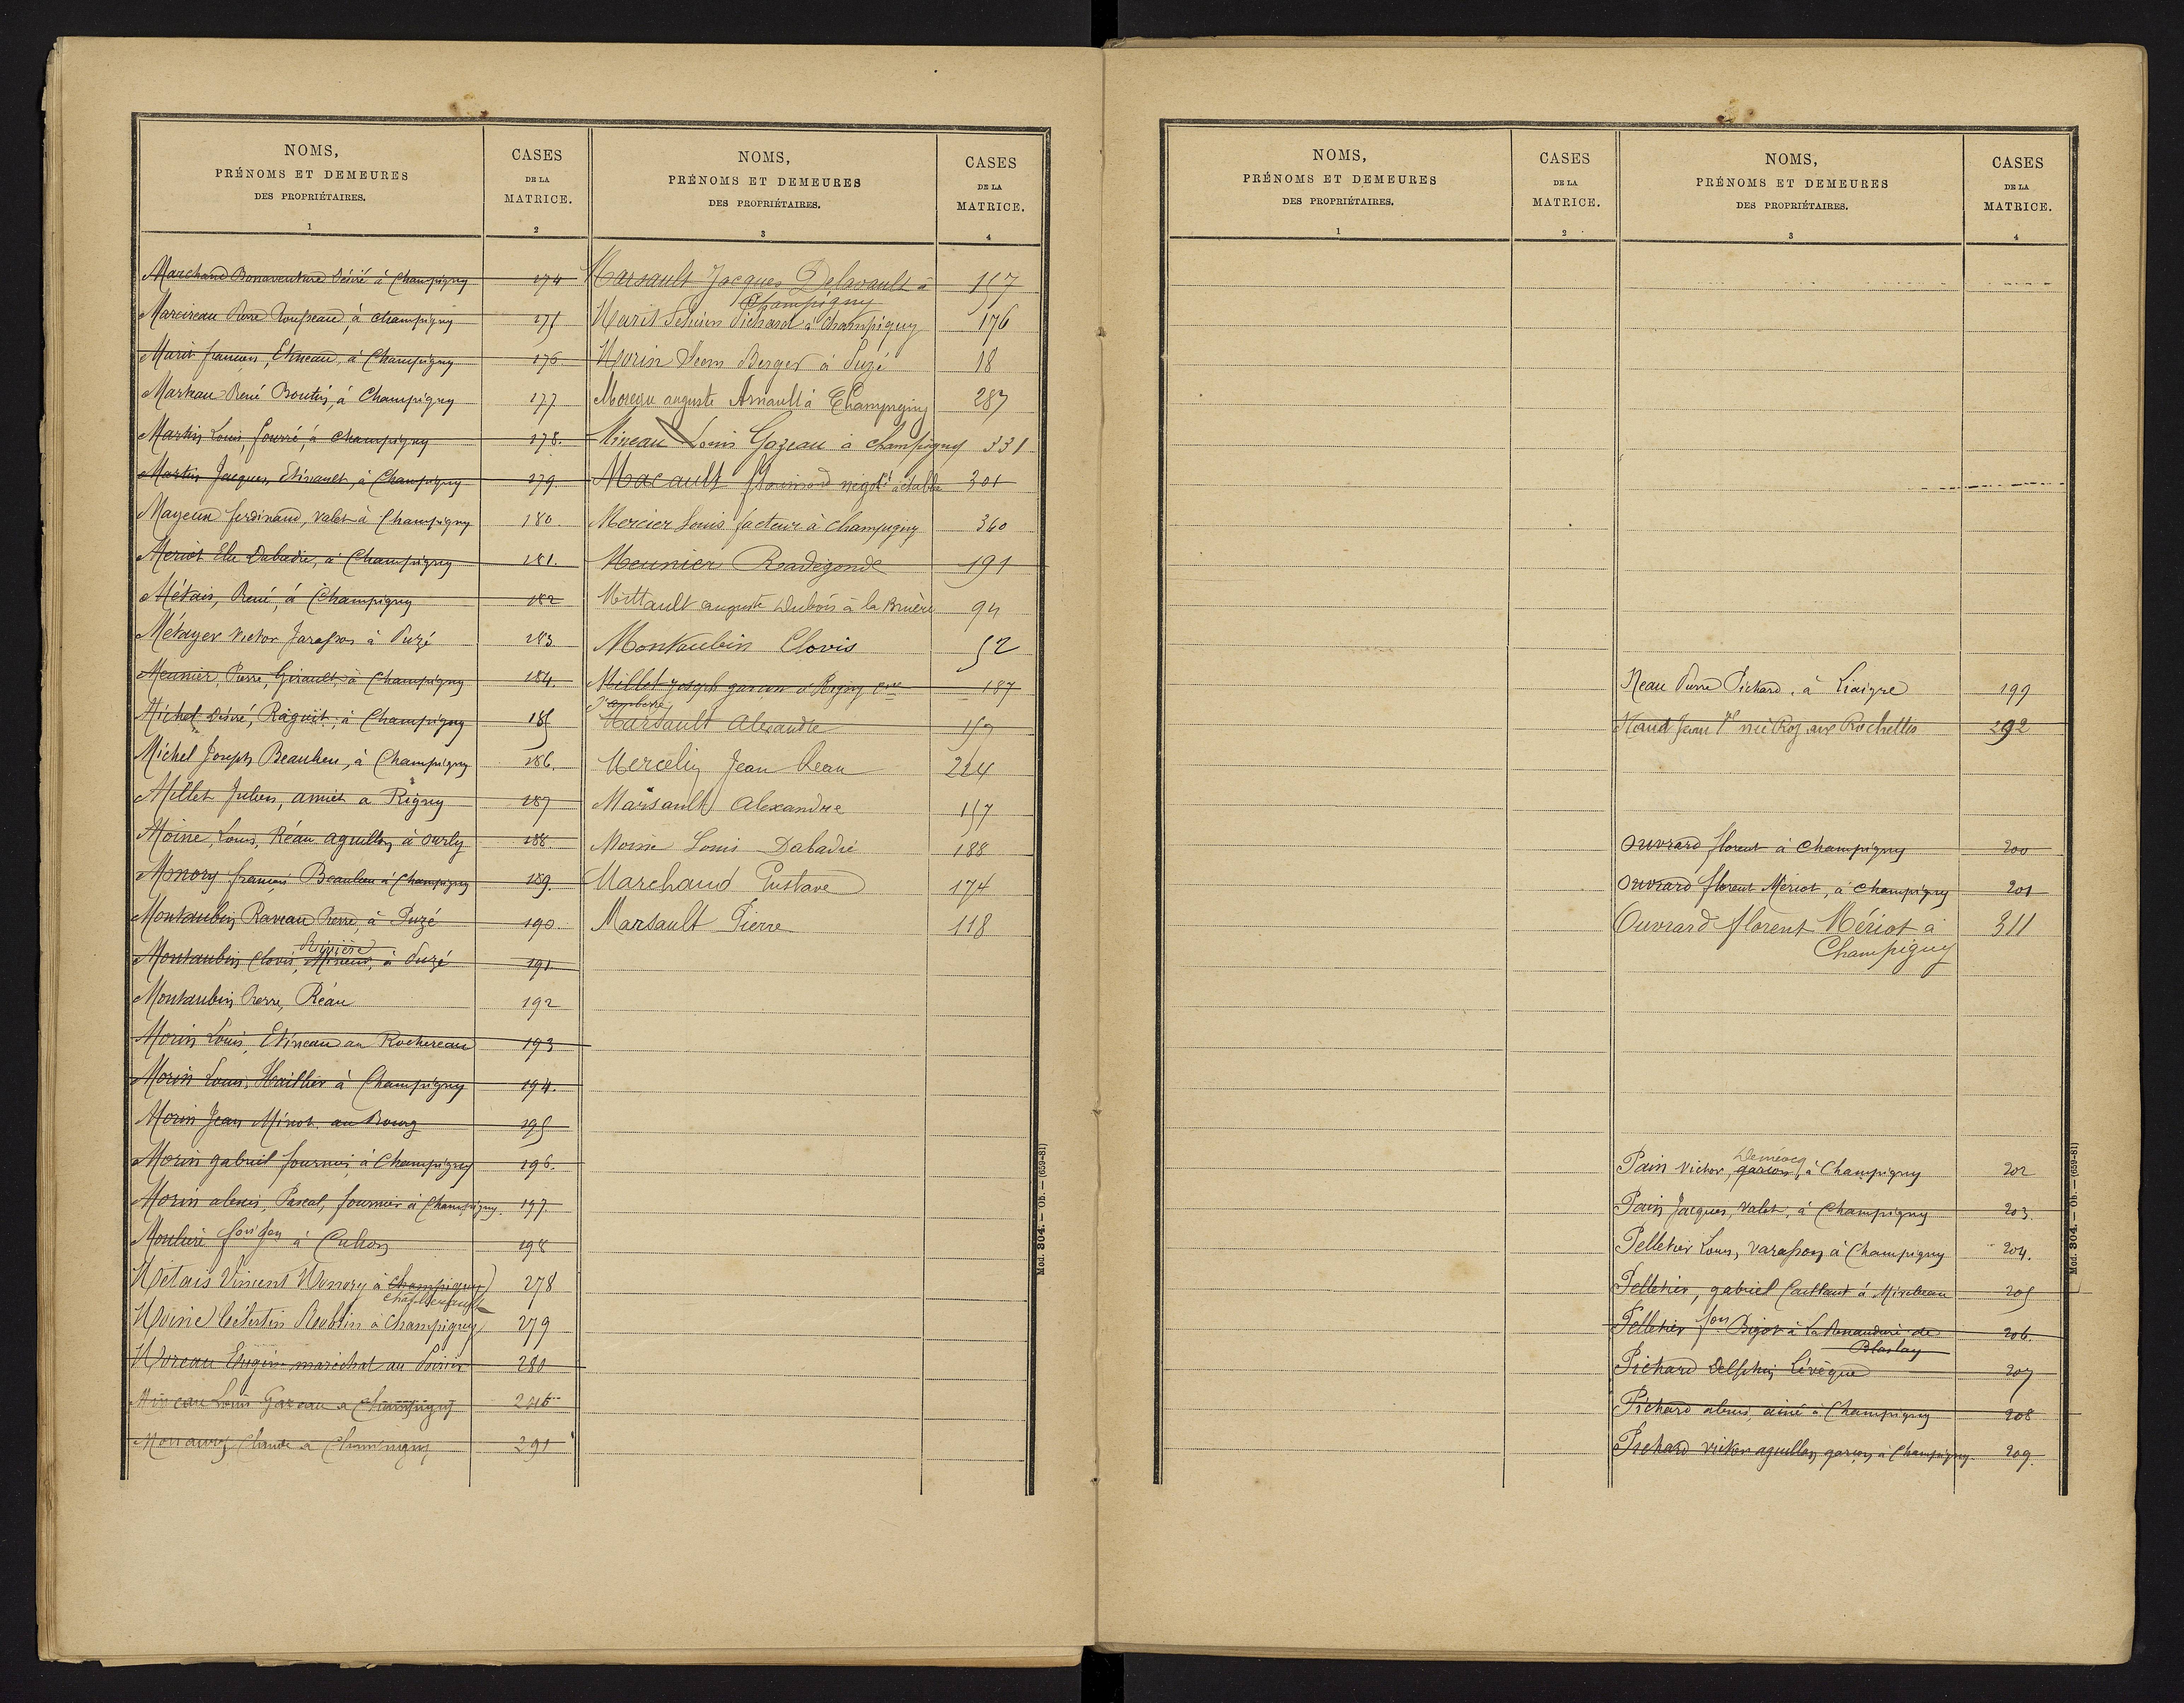 NOMS,
PRÉNOMS ET DEMEURES
DES PROPRIÉTAIRES.
1
CASES
DE LA
MATRICE.
2
Marchand Bonaventure Désiré à Champigny 174
Marcireau Pierre Rousseau, à Champigny 175
Marit françois, Etineau, à Champigny 176
Marteau René Boutin, à Champigny 177
Martin Louis, fourré, à Champigny 178.
Martin Jacques, Etinault, à Champigny 179.
Mayeux ferdinand, valet à Champigny 180.
Meriot Elie Dabadie, à Champigny 181.
Métais, René, à Champigny 182
Métayer Victor Jarasson à Puzé 183
Meunier, Pierre, Girault, à Champigny 184.
Michel Désiré, Raguit, à Champigny 185
Michel Joseph Beaulieu, à Champigny 186.
Millet Julien, amiet à Rigny 187
Moine, Louis, Réau aguillon à Ourly 188
Monory françois Beaulieu à Champigny 189.
Montaubin Raveau Pierre, à Puzé 190
Rivière
Montaubin Clovis, à Puzé 191
Montaubin Pierre, Réau 192
Morin Louis, Etineau au Rochereau 193
Morin Louis, Haillier à Champigny 194.
Morin Jean Minot au Bourg 195
Morin gabriel fournier à Champigny 196.
Morin alexis, Pascal, fournier à Champigny. 197.
Mouliere à Cuhon 198
Métais Vincent Monory à Champigny 278
Moine Célestin Roublin à Champigny 279
Moreau Eugène maréchal au Poirier 280
Mineau Louis Gazeau a Champigny 286
Claude a Champigny 291
NOMS,
PRÉNOMS ET DEMEURES
DES PROPRIÉTAIRES.
3
CASES
DE LA
MATRICE.
4
Marsault Jacques Delavault à 157
Champigny
Marit Pichard à Champigny 176
Morin Berger à Puzé 18
Moreau auguste Arnault à Champigny 287
Mineau Louis Gazeau à champigny 331
Macault negt à étables 301
Mercier Louis facteur à champigny 360
Meunier Radégonde 191
Mittault auguste Dubois à la Bruère 94
Montaubin Clovis 52
Millet Joseph garçon à Rigny 187
Marsault Alexandre 157
Mercelin Jean Reau 224
Marsault Alexandre 157
Moine Louis Dabadie 188
Marchand Gustave 174
Marsault Pierre 118
Mod. 804. — Ob. — (659-81)
NOMS,
PRÉNOMS ET DEMEURES
DES PROPRIÉTAIRES.
1
CASES
DE LA
MATRICE.
2
NOMS,
PRÉNOMS ET DEMEURES
DES PROPRIÉTAIRES.
3
CASES
DE LA
MATRICE.
4
Neau Pierre Pichard, à Liaigre 199
Naud Jean Ve née Roy aux Rochettes 292
Ouvrard florent à Champigny 200
Ouvrard florent Mériot, à champigny 201
Ouvrard florent Mériot à 311
Champigny
Pain victor, garçon, à Champigny 202
Pain Jacques, Valet, à Champigny 203.
Pelletier Louis, Varasson à Champigny 204.
Pelletier, gabriel Caillaut à Mirebeau 205
Pelletier fois Bigot à La Renaudière de 206.
Blaslay
Pichard Delphin Lévêque 207
Pichard alexis, ainé à Champigny 208
Pichard victor aguillon garçon à Champigny. 209.
Mod. 804. — Ob. — (659-81)